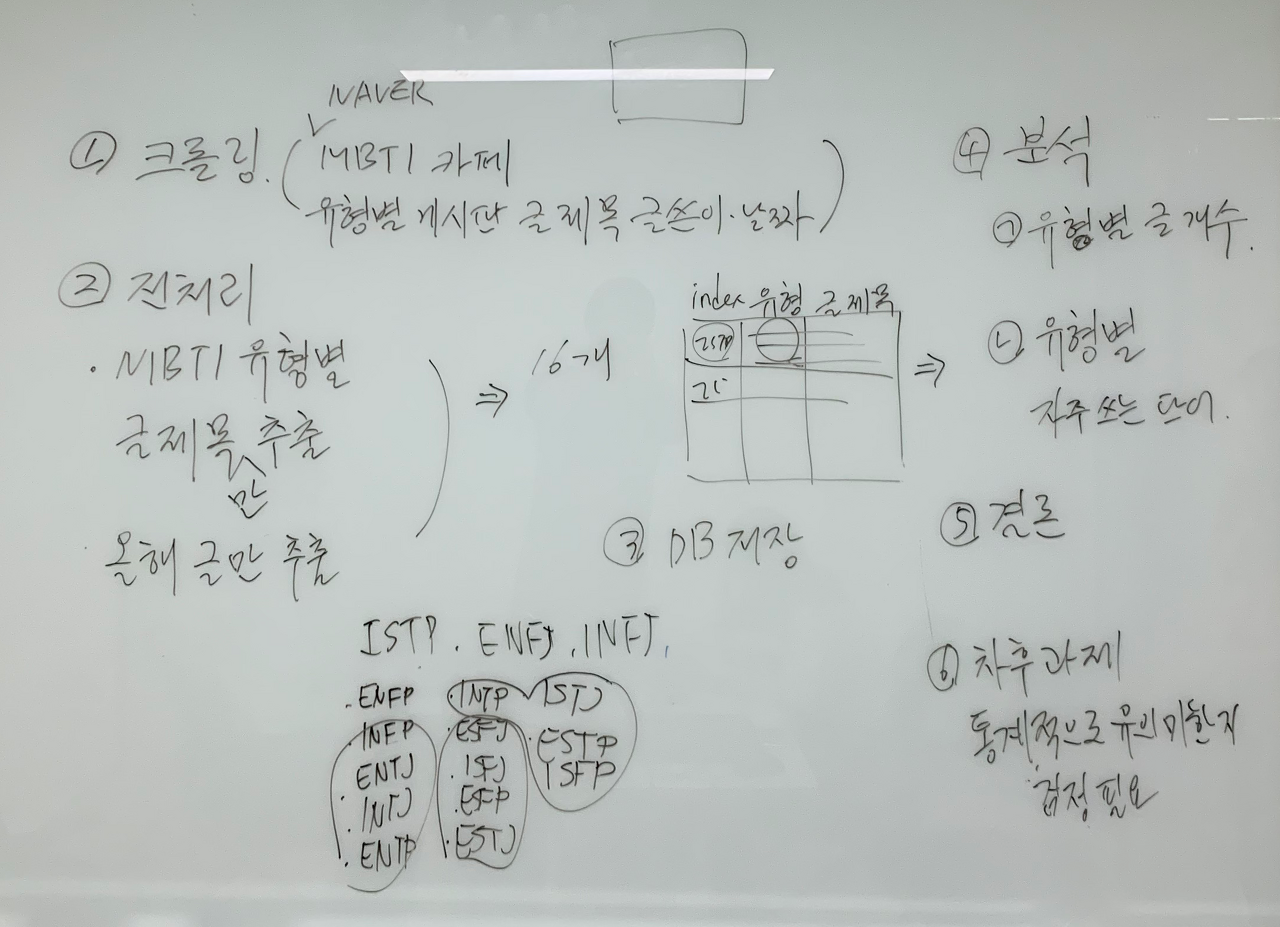 NAVER
① 크롤링. ( MBTI 카페
유형별 게시판 글 제목 글쓴이·날짜 )
② 전처리
· MBTI 유형별
글제목 추출
만
올해 글만 추출
⇒ 16개
index 유형 글 제목
⇒
③ DB 저장
ISTP . ENFJ . INFJ .
.ENFP .INTP ISTJ
.INFP .ESFJ .ESTP
.ENTJ .ISFJ ISFP
.INTJ .ESFP
.ENTP .ESTJ
④ 분석
㉠ 유형별 글 개수.
㉡ 유형별
자주 쓰는 단어.
⑤ 결론
⑥ 차후과제
통계적으로 유의미한지
검정 필요